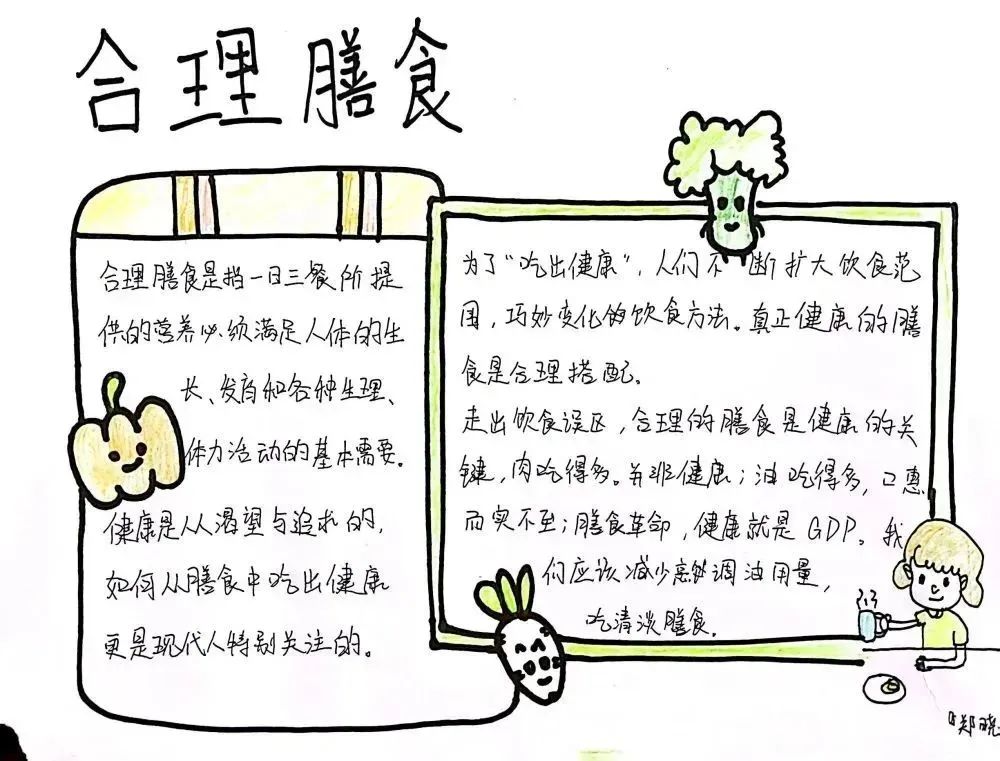 合理膳食
合理膳食是指一日三餐所提
供的营养必须满足人体的生
长、发育和各种生理、
体力活动的基本需要。
健康是人渴望与追求的,
如何从膳食中吃出健康
更是现代人特别关注的。
为了“吃出健康”,人们不断扩大饮食范
围,巧妙变化的饮食方法。真正健康的膳
食是合理搭配。
走出饮食误区,合理的膳食是健康的关
键,肉吃得多。并非健康;油吃得多,口惠
而实不至;膳食革命,健康就是GDP。我
们应该减少烹饪调油用量,
吃清淡膳食.
郑晓